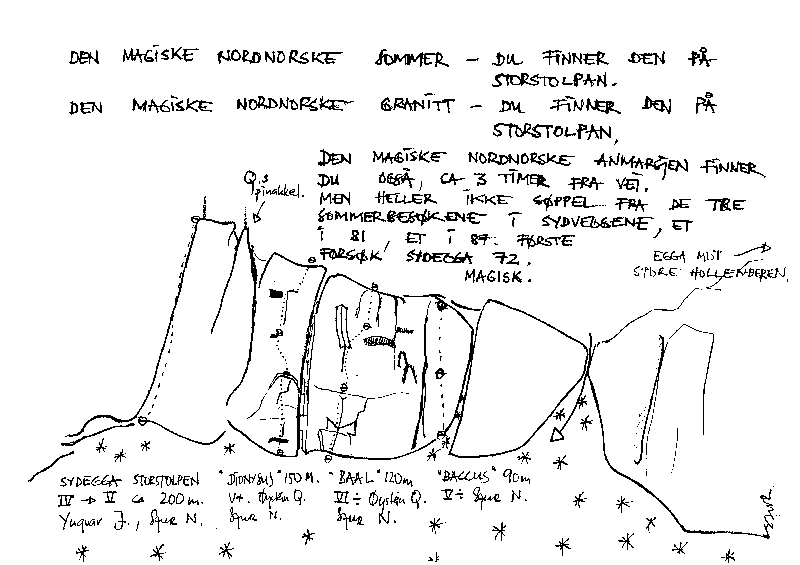 DEN MAGISKE NORDNORSKE SOMMER – DU FINNER DEN PÅ
STORSTOLPAN.
DEN MAGISKE NORDNORSKE GRANITT – DU FINNER DEN PÅ
STORSTOLPAN,
DEN MAGISKE NORDNORSKE ANMARSJEN FINNER
DU OGSÅ, CA 3 TIMER FRA VEI.
MEN HELLER IKKE SØPPEL FRA DE TRE
SOMMERBESØKENE I SYDVEGGENE, ET
I 81, ET I 87. FØRSTE
FORSØK SYDEGGA 72.
MAGISK.
Q.s
pinakkel.
EGGA MOT
STORE HOLLENDEREN.
SYDEGGA STORSTOLPEN
IV → V CA 200 m.
J., Sjur N.
"DIONYSUS" 150 M.
V+. Øystein Q.
Sjur N.
"BAAL" 120m
VI ÷ Øystein Q.
Sjur N.
"BACCUS" 90m
V ÷ Sjur N.